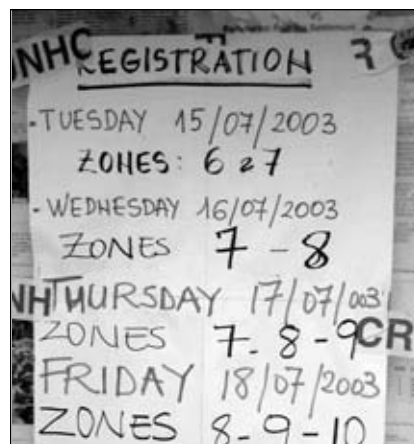 UNHC
REGISTRATION
- TUESDAY 15/07/2003
ZONES: 6 e 7
- WEDNESDAY 16/07/2003
ZONES 7 - 8
NH
THURSDAY 17/07/003
ZONES 7. 8 - 9
CR
FRIDAY 18/07/2003
ZONES 8 - 9 - 10